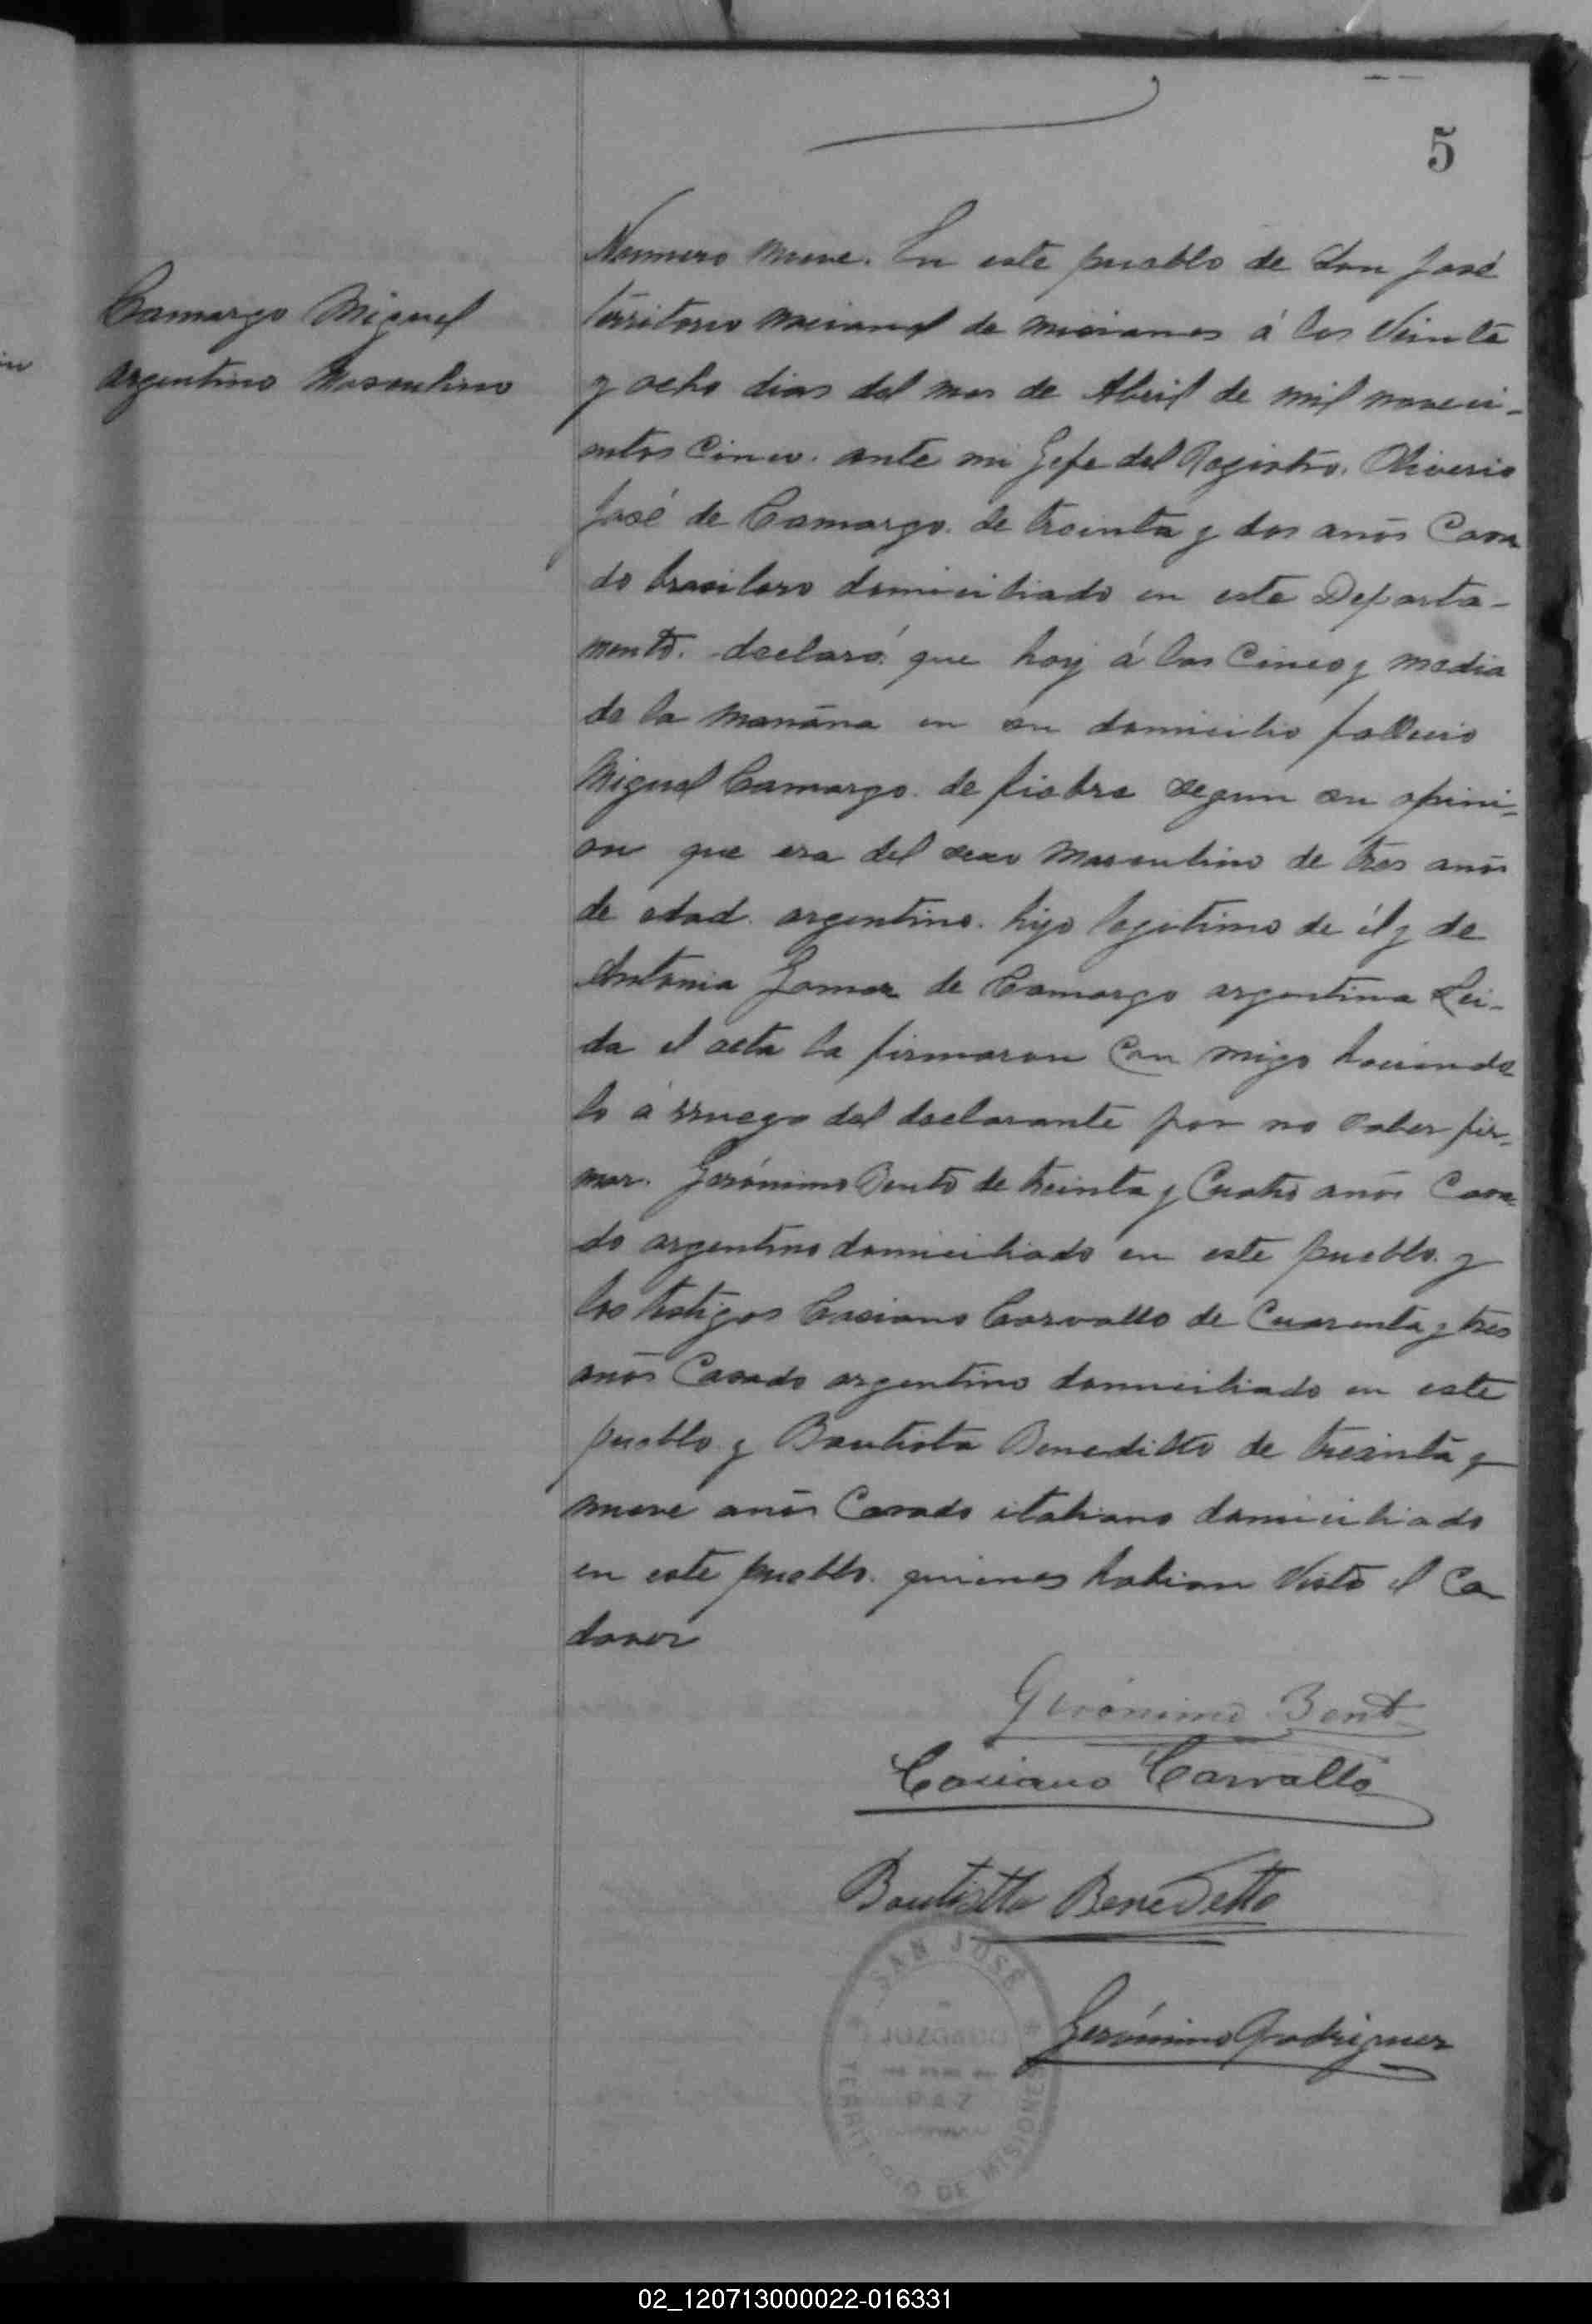 5
Camargo Miguel
argentino Masculino
Numero nueve. En este pueblo de San José
territorio nacional de misiones á los Veinte
y ocho dias del mes de Abril de mil noveci-
entos Cinco. ante mi Gefe del Registro. Oliverio
José de Camargo. de treinta y dos años Casa
do brasilero domiciliado en este Departa-
mento. declaró que hoy á las Cinco y media
de la mañana en su domicilio fallecio
Miguel Camargo. de fiebre segun su opini-
on que era del sexo Masculino de tres años
de edad. argentino. hijo legitimo de él y de
Antonia Gomez de Camargo argentina Lei-
da el acta la firmaron Con migo haciendo
lo á rruego del declarante por no saber fir-
mar. Gerónimo Bento de treinta y Cuatro años Casa-
do argentino domiciliado en este pueblo. y
los testigos Casiano Carvallo de Cuarenta y tres
años Casado argentino domiciliado en este
pueblo. y Bautista Beneditto de treinta y
nueve años Casado italiano domiciliado
en este pueblo. quienes habian Visto el Ca
daver
Gerónimo Bento
Casiano Carvallo
Bautistta Benedetto
Gerónimo Rodriguez
SAN JOSÉ
JUZGADO
DE
PAZ
TERRITORIO DE MISIONES
02_120713000022-016331